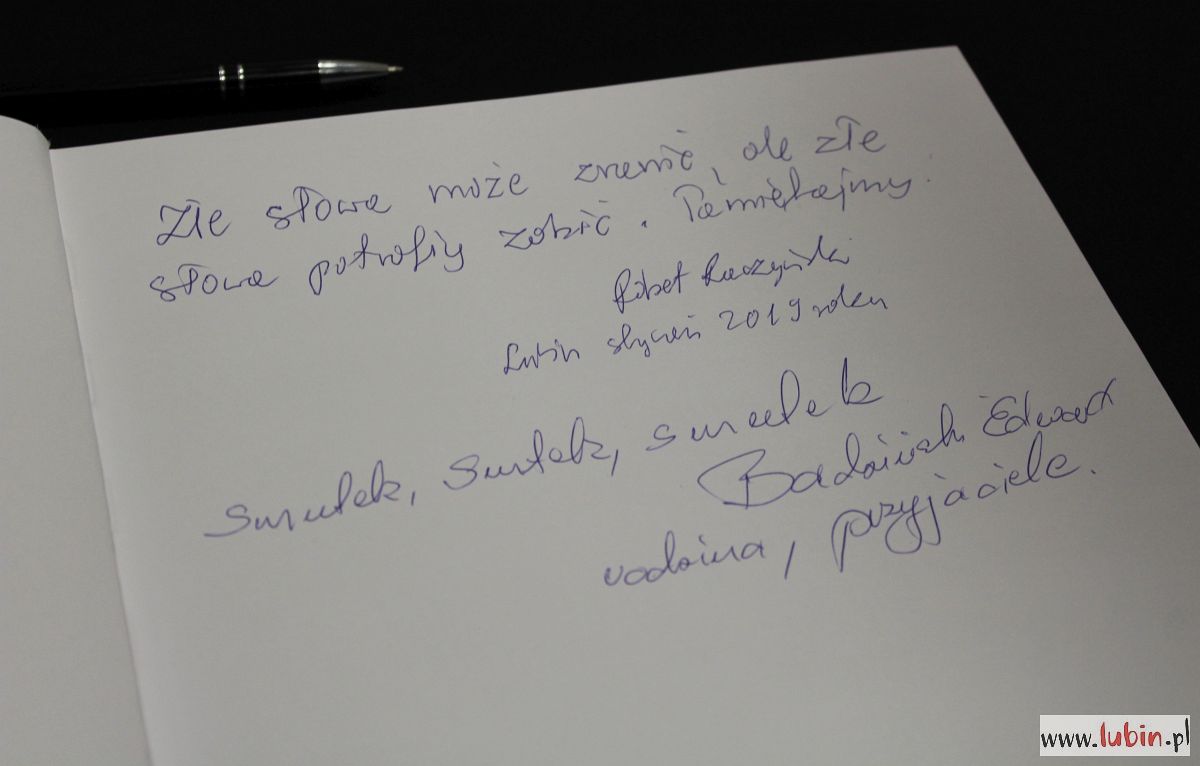 Złe słowa może zmienić, ale złe
słowa potrafiy zabić. Pamiętajmy.
Robert Raczyński
Lubin styczeń 2019 roku
Smutek, Smutek, smutek
Badziński Edward
rodzina, przyjaciele.
www.lubin.pl